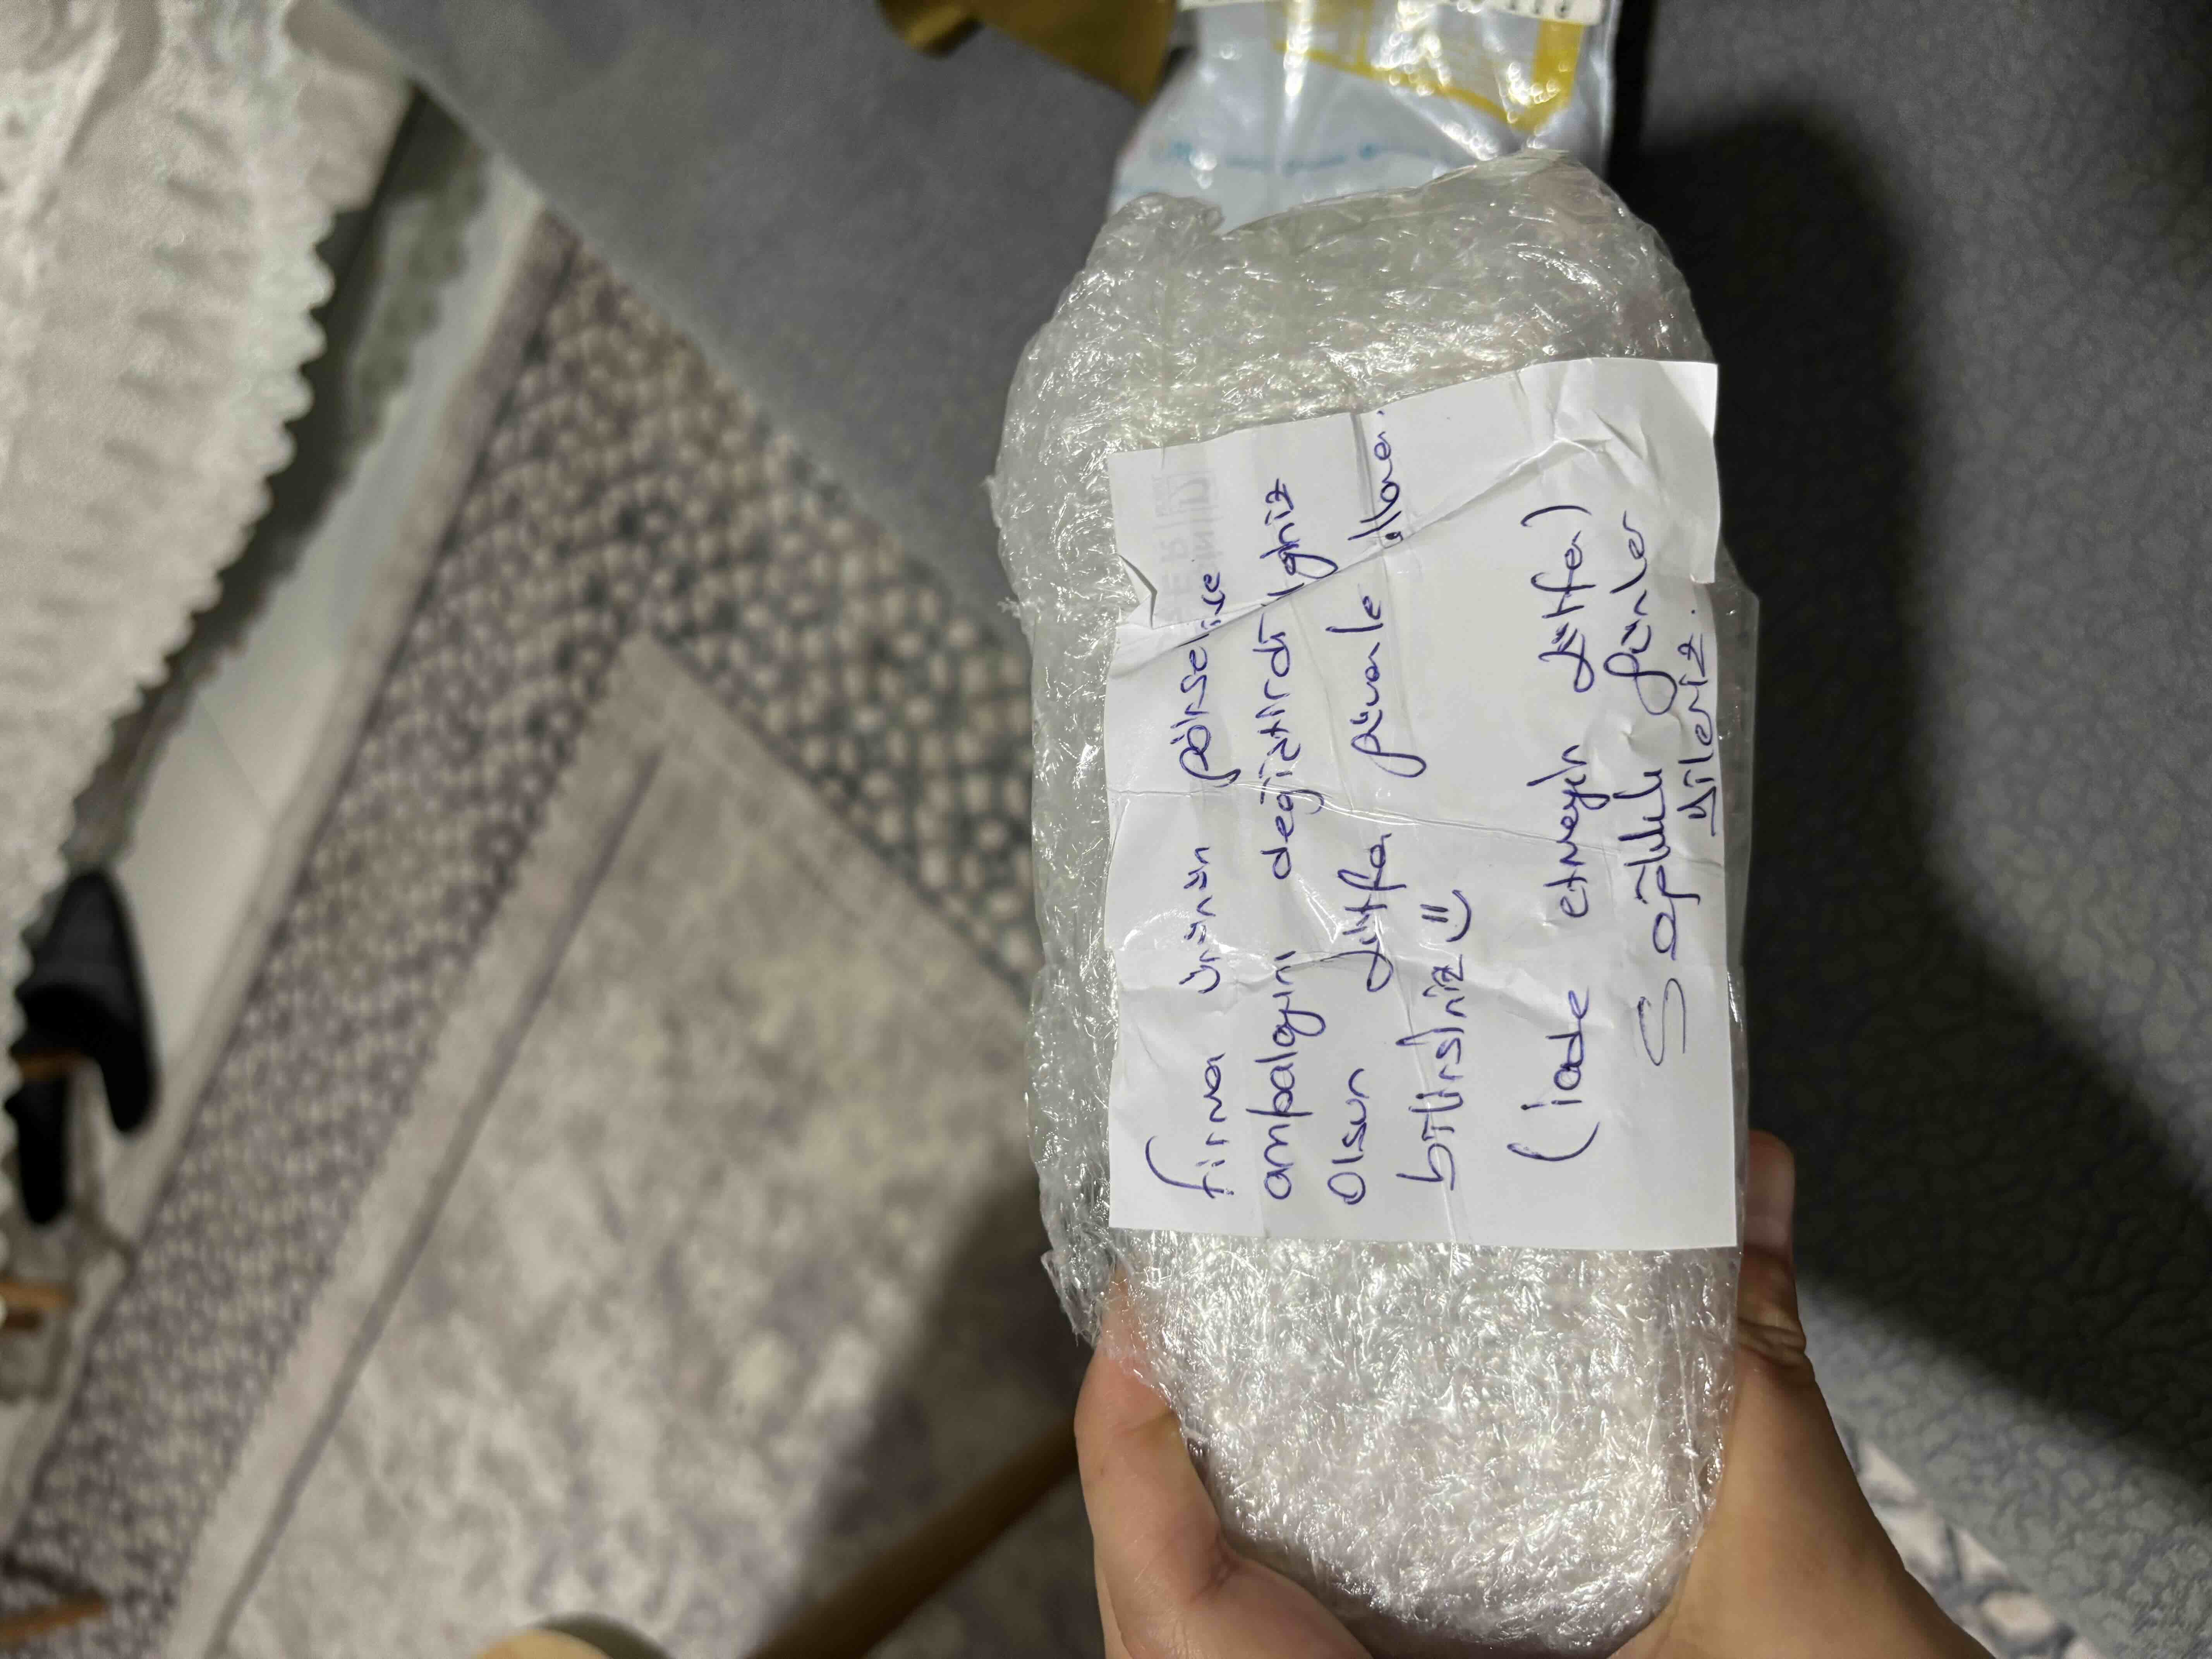 firma ürünün pörselize
ambalajını değiştirdi ilginiz
olsun lütfen güvenle kullanın.
bitirsiniz
(iade etmeyin lütfen)
Sağlıklı günler
dileriz.